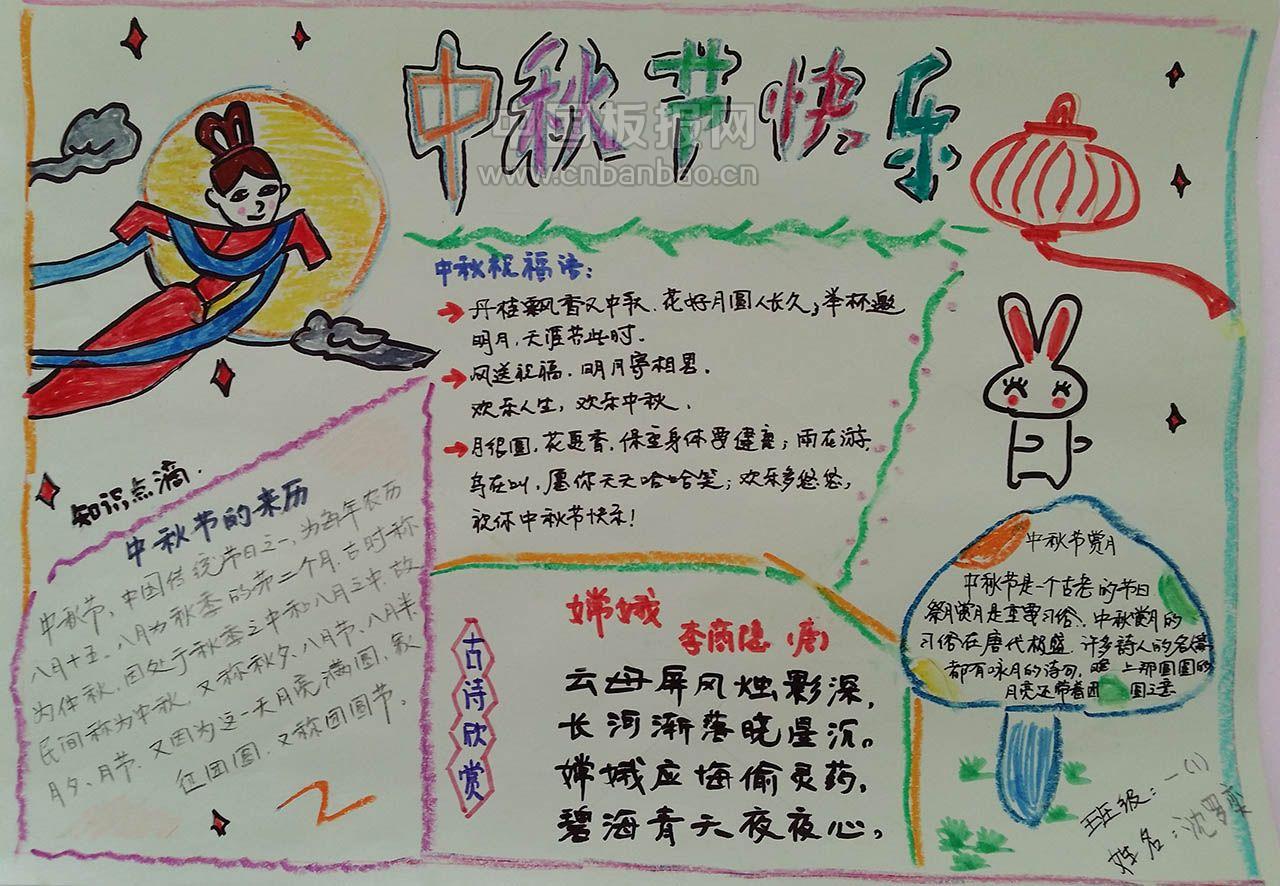 中秋节快乐
中国板报网
www.cnbanbao.cn
中秋祝福语:
丹桂飘香又中秋、花好月圆人长久;举杯邀
明月,天涯共此时.
风送祝福.明月寄相思.
欢乐人生,欢乐中秋.
月很圆,花更香,保重身体要健康;雨在游,
鸟在叫,愿你天天哈哈笑;欢乐多悠悠,
祝你中秋节快乐!
知识点滴.
中秋节的来历
中秋节,中国传统节日之一,为每年农历
八月十五.八月为秋季的第二个月,古时称
为仲秋,因处于秋季之中和八月之中,故
民间称为中秋,又称秋夕、八月节、八月半、
月夕、月节,又因为这一天月亮满圆,象
征团圆,又称团圆节.
古诗欣赏
嫦娥
李商隐(唐)
云母屏风烛影深,
长河渐落晓星沉。
嫦娥应悔偷灵药,
碧海青天夜夜心,
中秋节赏月
中秋节是一个古老的节日
祭月赏月是重要习俗、中秋赏月的
习俗在唐代极盛.许多詩人的名篇
都有咏月的诗句, 上那圆圆的
月亮还带着团圆之意
班级:一(1)
姓名:沈